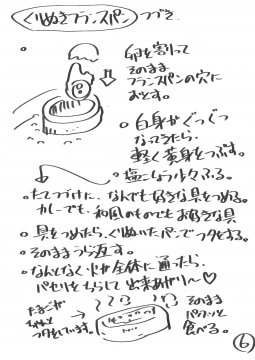 くりぬきフランスパン つづき.
卵を割って
そのまま
フランスパンの穴に
おとす。
白身がぐつぐつ
なってきたら.
軽く黄身をつぶす。
塩こしょう少々ふる。
たてつづけに、なんでも好きな具をつめる。
カレーでも、和風のものでもお好きな具
具をつめたら、くりぬいたパンでフタをする。
そのままうら返す。
なんとなく火が全体に通ったら、
パセリをちらして出来あがり〜♡
たまごが
ちゃんと
フタをしています。
そのまま
パクッと
食べる。
6